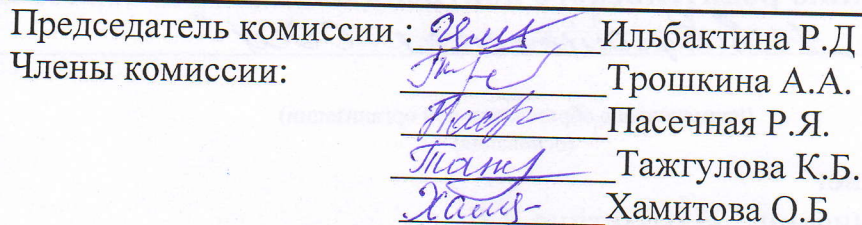 Председатель комиссии : Ильбактина Р.Д
Члены комиссии: Трошкина А.А.
Пасечная Р.Я.
Тажгулова К.Б.
Хамитова О.Б